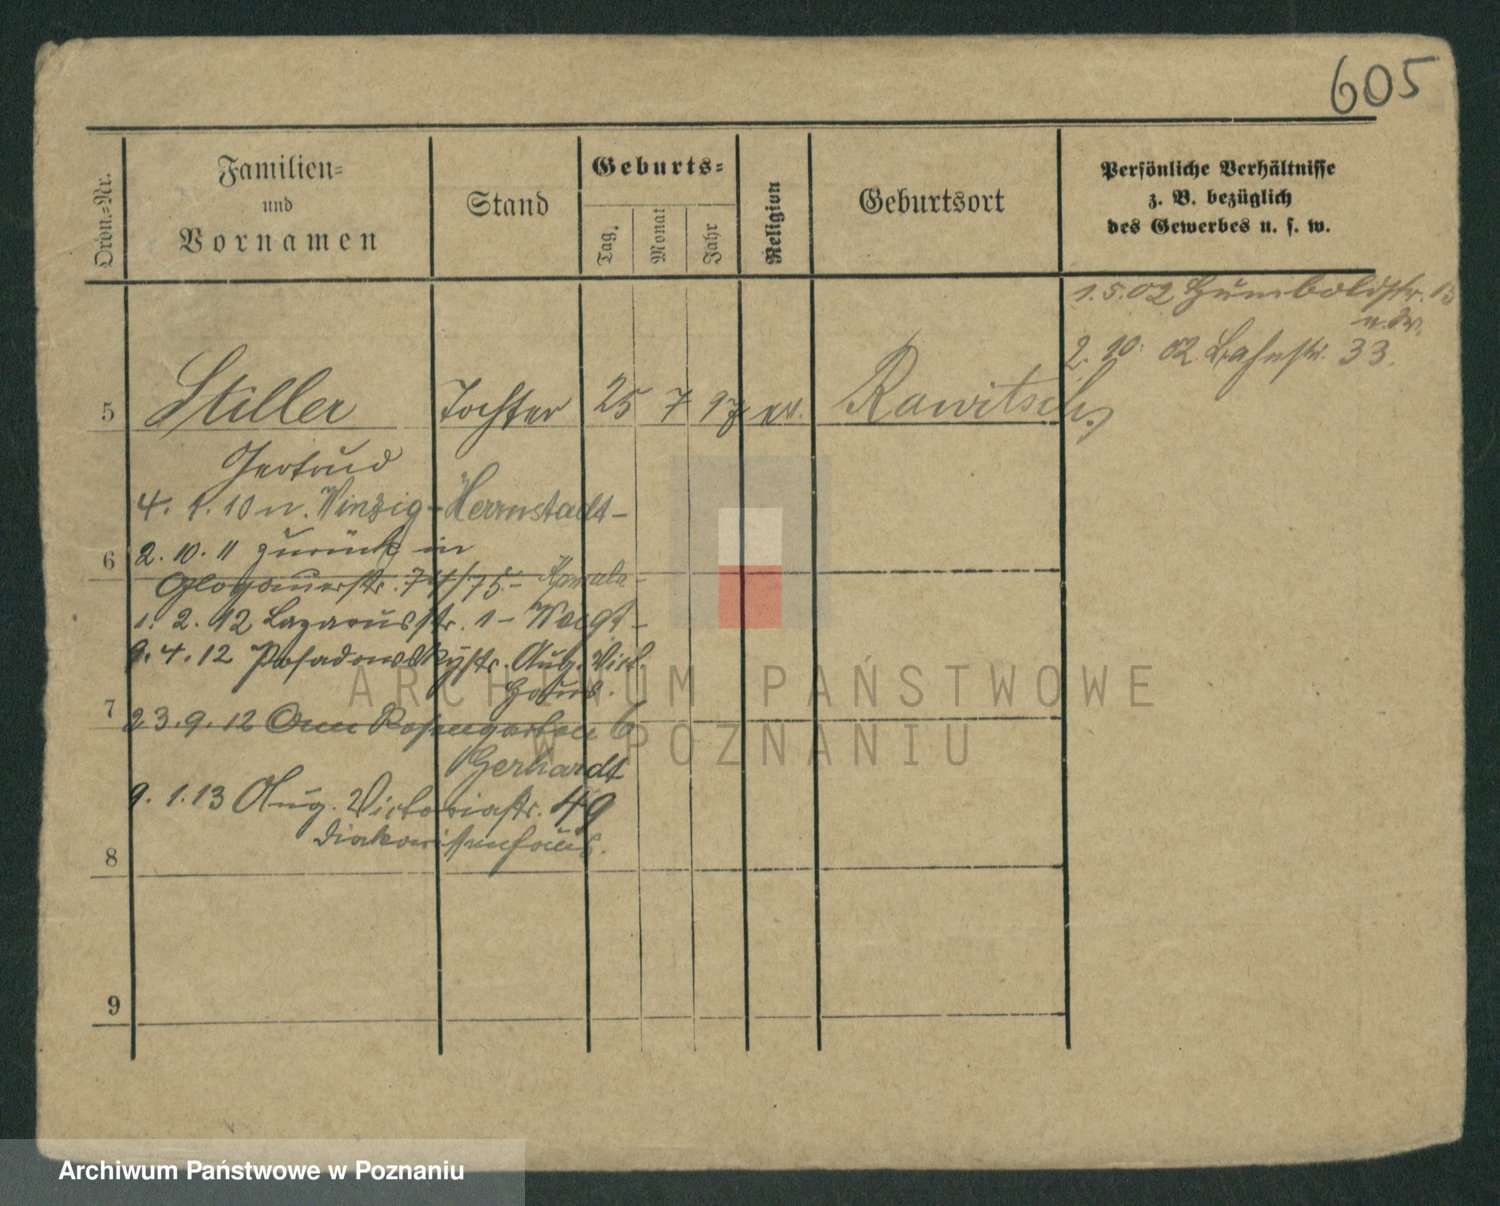 605
Ordn.-Nr.
Familien-
und
Vornamen
Stand
Geburts-
Tag.
Monat
Jahr
Religion
Geburtsort
Persönliche Verhältnisse
z. B. bezüglich
des Gewerbes u. s. w.
1.5.02 Humboldstr. 13
2. 10. 02 Bahnstr. 33.
5 Stiller Tochter 25 7 97 ev. Rawitsch
Gertrud
4. 1. 10 n. Winzig - Herrnstadt -
2. 10. 11 zurück in
6
Glogauerstr. 74/75 -
1. 2. 12 Lazarusstr. 1 - Voigt -
9. 4. 12 Posadowskystr. Aug. Vict.
Haus.
7
23. 9. 12 Am Rosengarten 6
Gerhardt
9. 1. 13 Aug. Victoriastr. 49
Diakonissenhaus.
8
9
ARCHIWUM PAŃSTWOWE
W POZNANIU
Archiwum Państwowe w Poznaniu